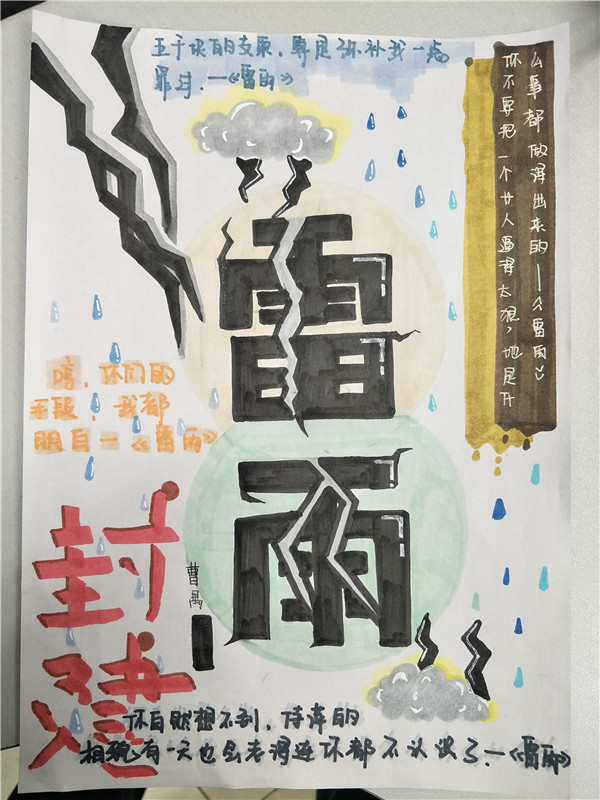 五千块的支票，算是弥补我一点
罪过.—《雷雨》
你不要把一个女人逼得太狠，她是什
么事都做得出来的——《雷雨》
雷雨
哼，你们的
手段，我都
明白—《雷雨》
曹禺
封建
你自然想不到，侍萍的
相貌有一天也会老得连你都不认识了.—《雷雨》